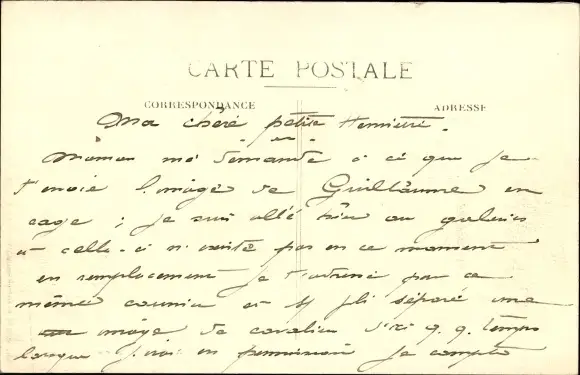 CARTE POSTALE
CORRESPONDANCE ADRESSE
Ma chère petite Henriette.
Maman me demande à ce que je
t'envoie l'image de Guillaume en
cage ; je suis allé hier au galeries
et celle-ci n'existe pas en ce moment
en remplacement je t'adresse par ce
même courrier et pli séparé une
image de cavalier d'ici q.q. temps
lorsque j'irai en permission je compte